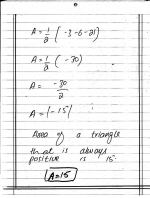 A = 1/2 (-3-6-21)
A = 1/2 (-30)
A = -30/2
A = |-15|
Area of a triangle
that is always
positive is 15.
A=15